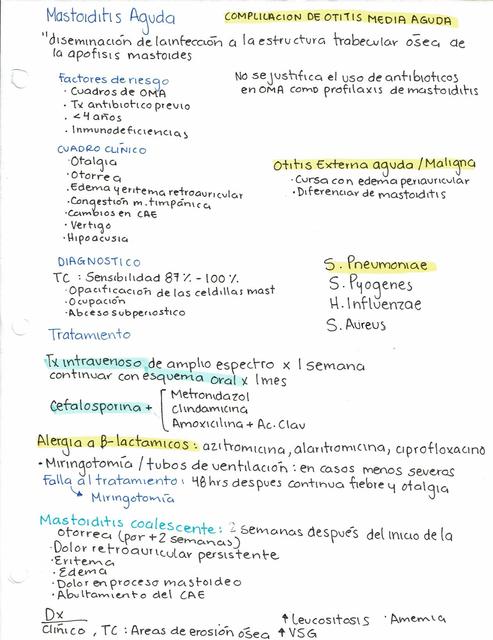 Mastoiditis Aguda
COMPLILACION DE OTITIS MEDIA AGUDA
"diseminación de la infección a la estructura trabecular ósea de
la apofisis mastoides
Factores de riesgo
· Cuadros de OMA
· Tx antibiotico previo
· <4 años
· Inmunodeficiencias
No se justifica el uso de antibioticos
en OMA como profilaxis de mastoiditis
CUADRO CLÍNICO
· Otalgia
· Otorrea
· Edema y eritema retroauricular
· Congestión m. timpánica
· Cambios en CAE
· Vertigo
· Hipoacusia
Otitis Externa aguda / Maligna
· Cursa con edema periauricular
· Diferenciar de mastoiditis
DIAGNOSTICO
TC : Sensibilidad 87% - 100%
· Opacificación de las celdillas mast
· Ocupación
· Abceso subperiostico
S. Pneumoniae
S. Pyogenes
H. Influenzae
S. Aureus
Tratamiento
Tx intravenoso de amplio espectro x 1 semana
continuar con esquema oral x 1mes
Cefalosporina +
Metronidazol
Clindamicina
Amoxicilina + Ac. Clav
Alergia a β-lactamicos : azitromicina, claritromicina, ciprofloxacino
· Miringotomía / tubos de ventilación : en casos menos severos
Falla al tratamiento : 48hrs despues continua fiebre y otalgia
↳ Miringotomía
Mastoiditis coalescente : 2 semanas después del inicio de la
otorrea (por +2 semanas)
· Dolor retroauricular persistente
· Eritema
· Edema
· Dolor en proceso mastoideo
· Abultamiento del CAE
Dx
Clínico , TC : Areas de erosión ósea
↑ Leucositosis · Anemia
↑ VSG